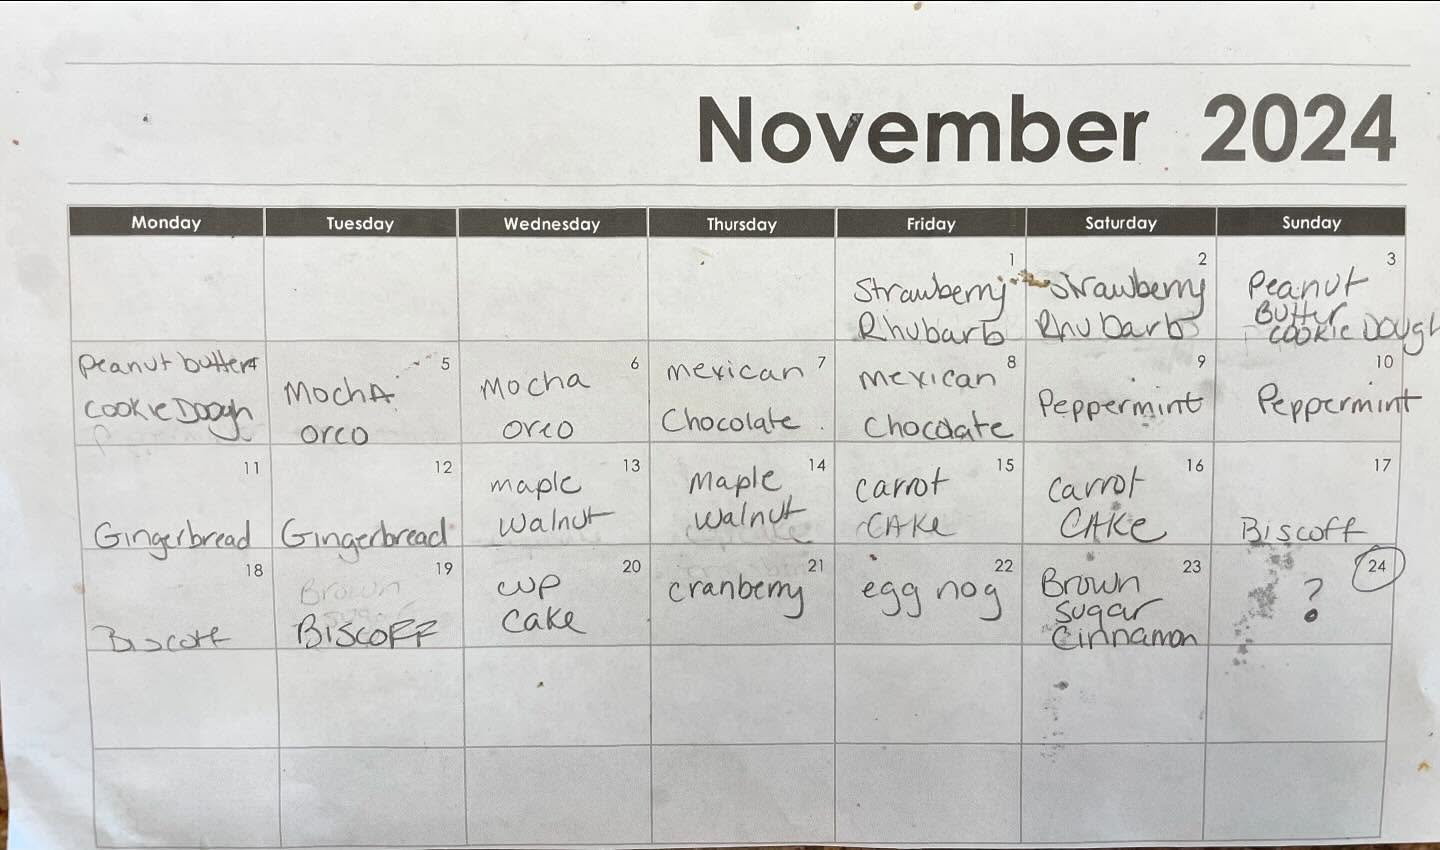 November 2024
Monday Tuesday Wednesday Thursday Friday Saturday Sunday
1
Strawberry
Rhubarb
2
Strawberry
Rhubarb
3
Peanut
Butter
cookie Dough
4
Peanut butter
cookie Doogh
5
MochA
oreo
6
Mocha
oreo
7
mexican
Chocolate
8
mexican
Chocolate
9
Peppermint
10
Peppermint
11
Gingerbread
12
Gingerbread
13
maple
walnut
14
Maple
walnut
15
carrot
CAKe
16
carrot
CAKe
17
Biscoff
18
Biscoff
19
Brown
BISCOFF
20
cup
cake
21
cranberry
22
egg nog
23
Brown
sugar
Cinnamon
24
?